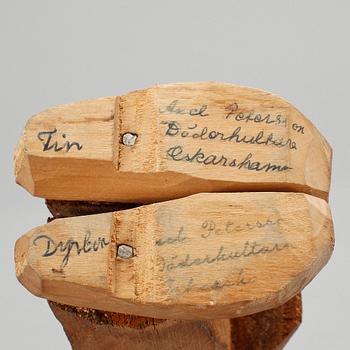 Tin
Axel Petersson
Döderhultarn
Oskarshamn
Axel Petersson
Döderhultarn